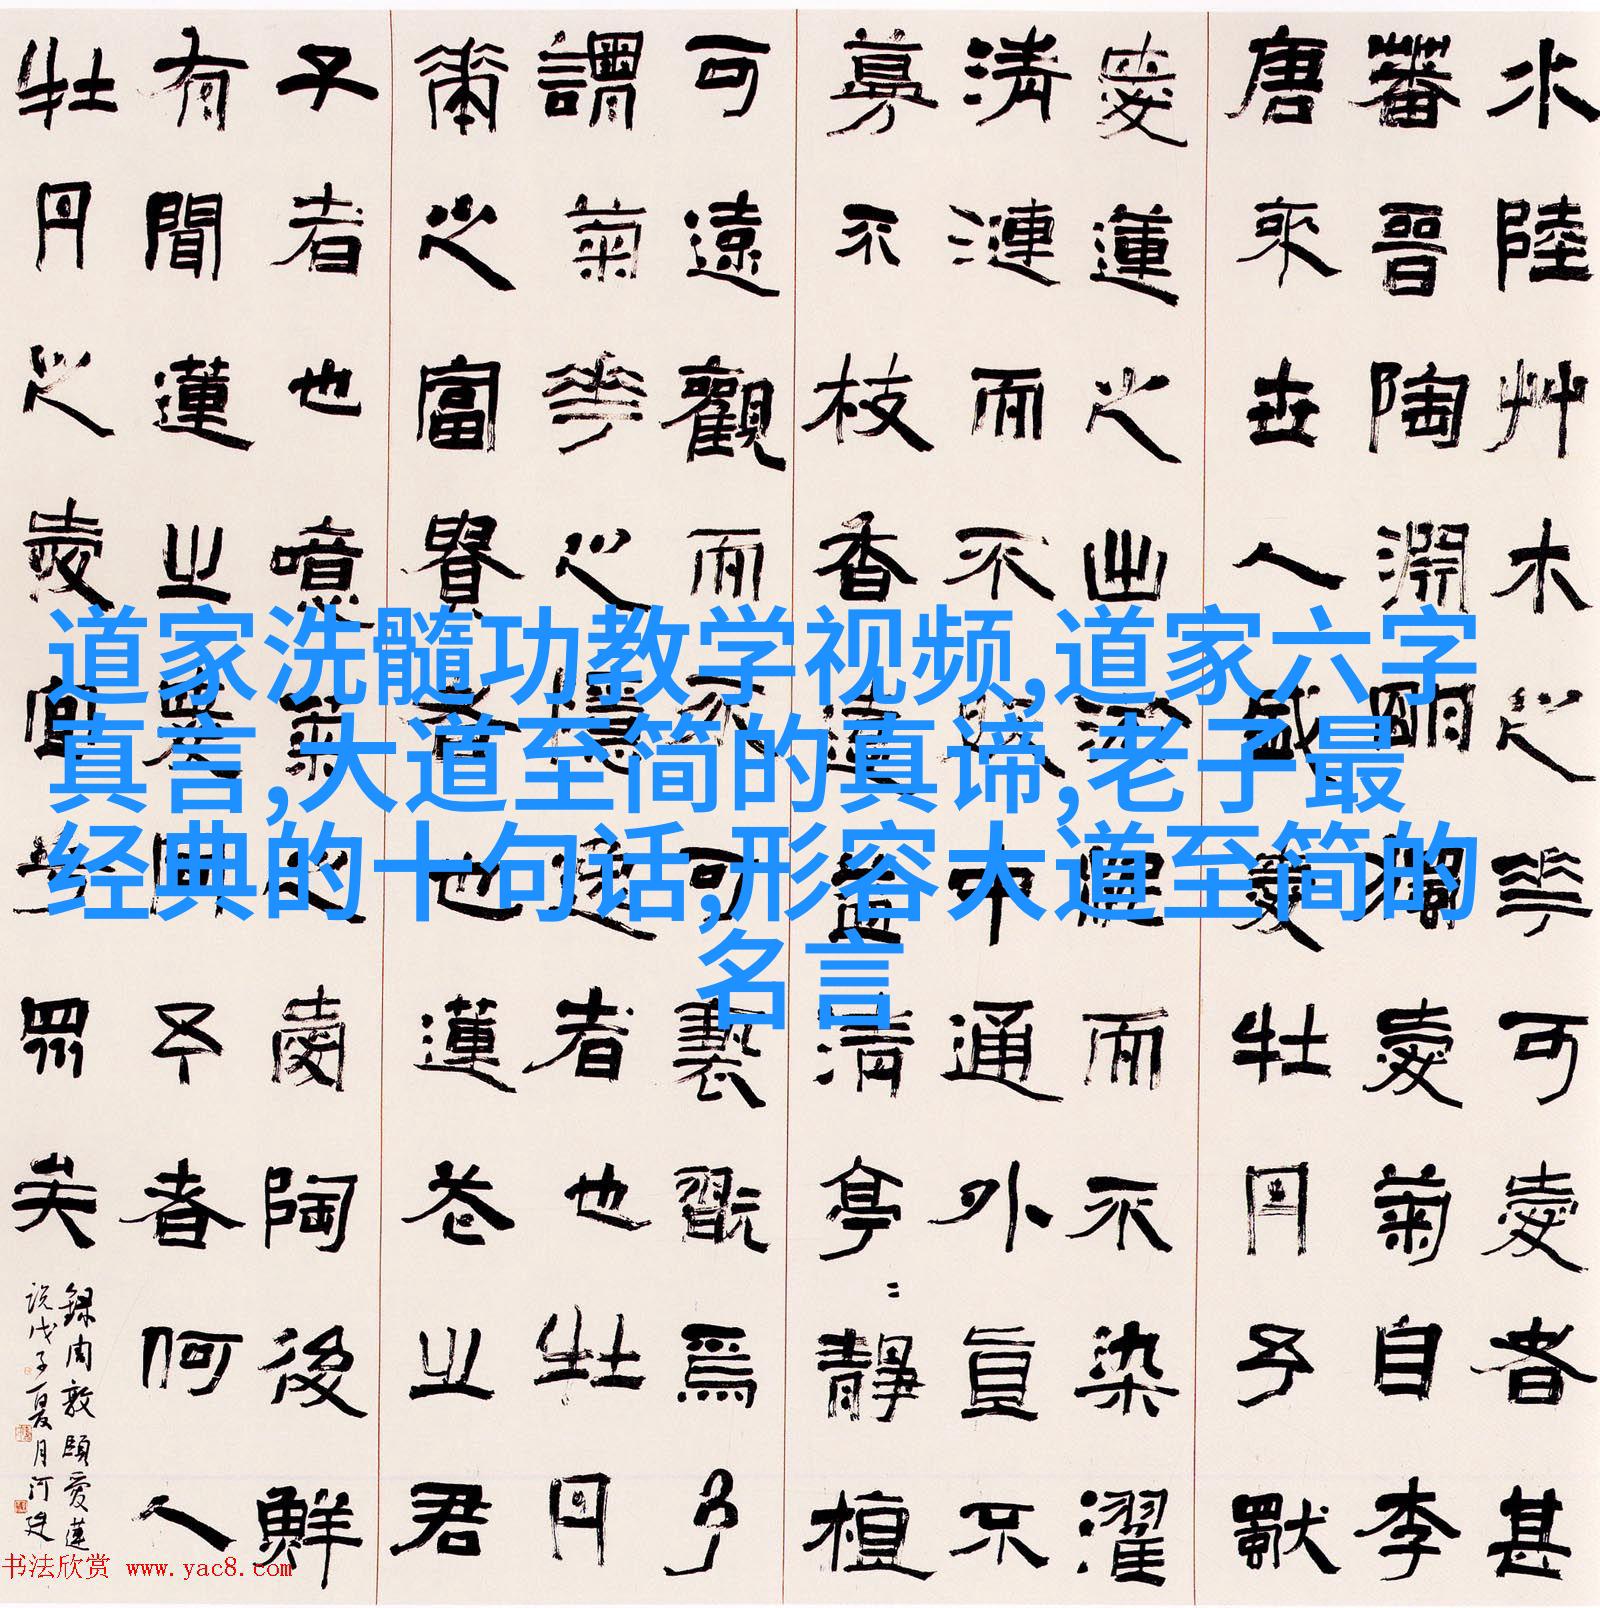 水陸艸木之花可愛者甚
蕃晉陶淵明獨愛菊自李
唐來世人盛愛牡丹予獨
愛蓮之出淤泥而不染濯
清漣而不妖中通外直不
蔓不枝香遠益清亭〻靜植
可遠觀而不可褻翫焉予
謂菊花之隱逸者也牡丹
華之富貴者也蓮花之君
子者也噫菊之愛陶後鮮
有聞蓮之愛同予者何人
牡丹之愛宜乎眾矣
錄周敦頤愛蓮
說戊子夏月河建
道家洗髓功教学视频,道家六字
真言,大道至简的真谛,老子最
经典的十句话,形容大道至简的
名言
书法欣赏 www.yac8.com